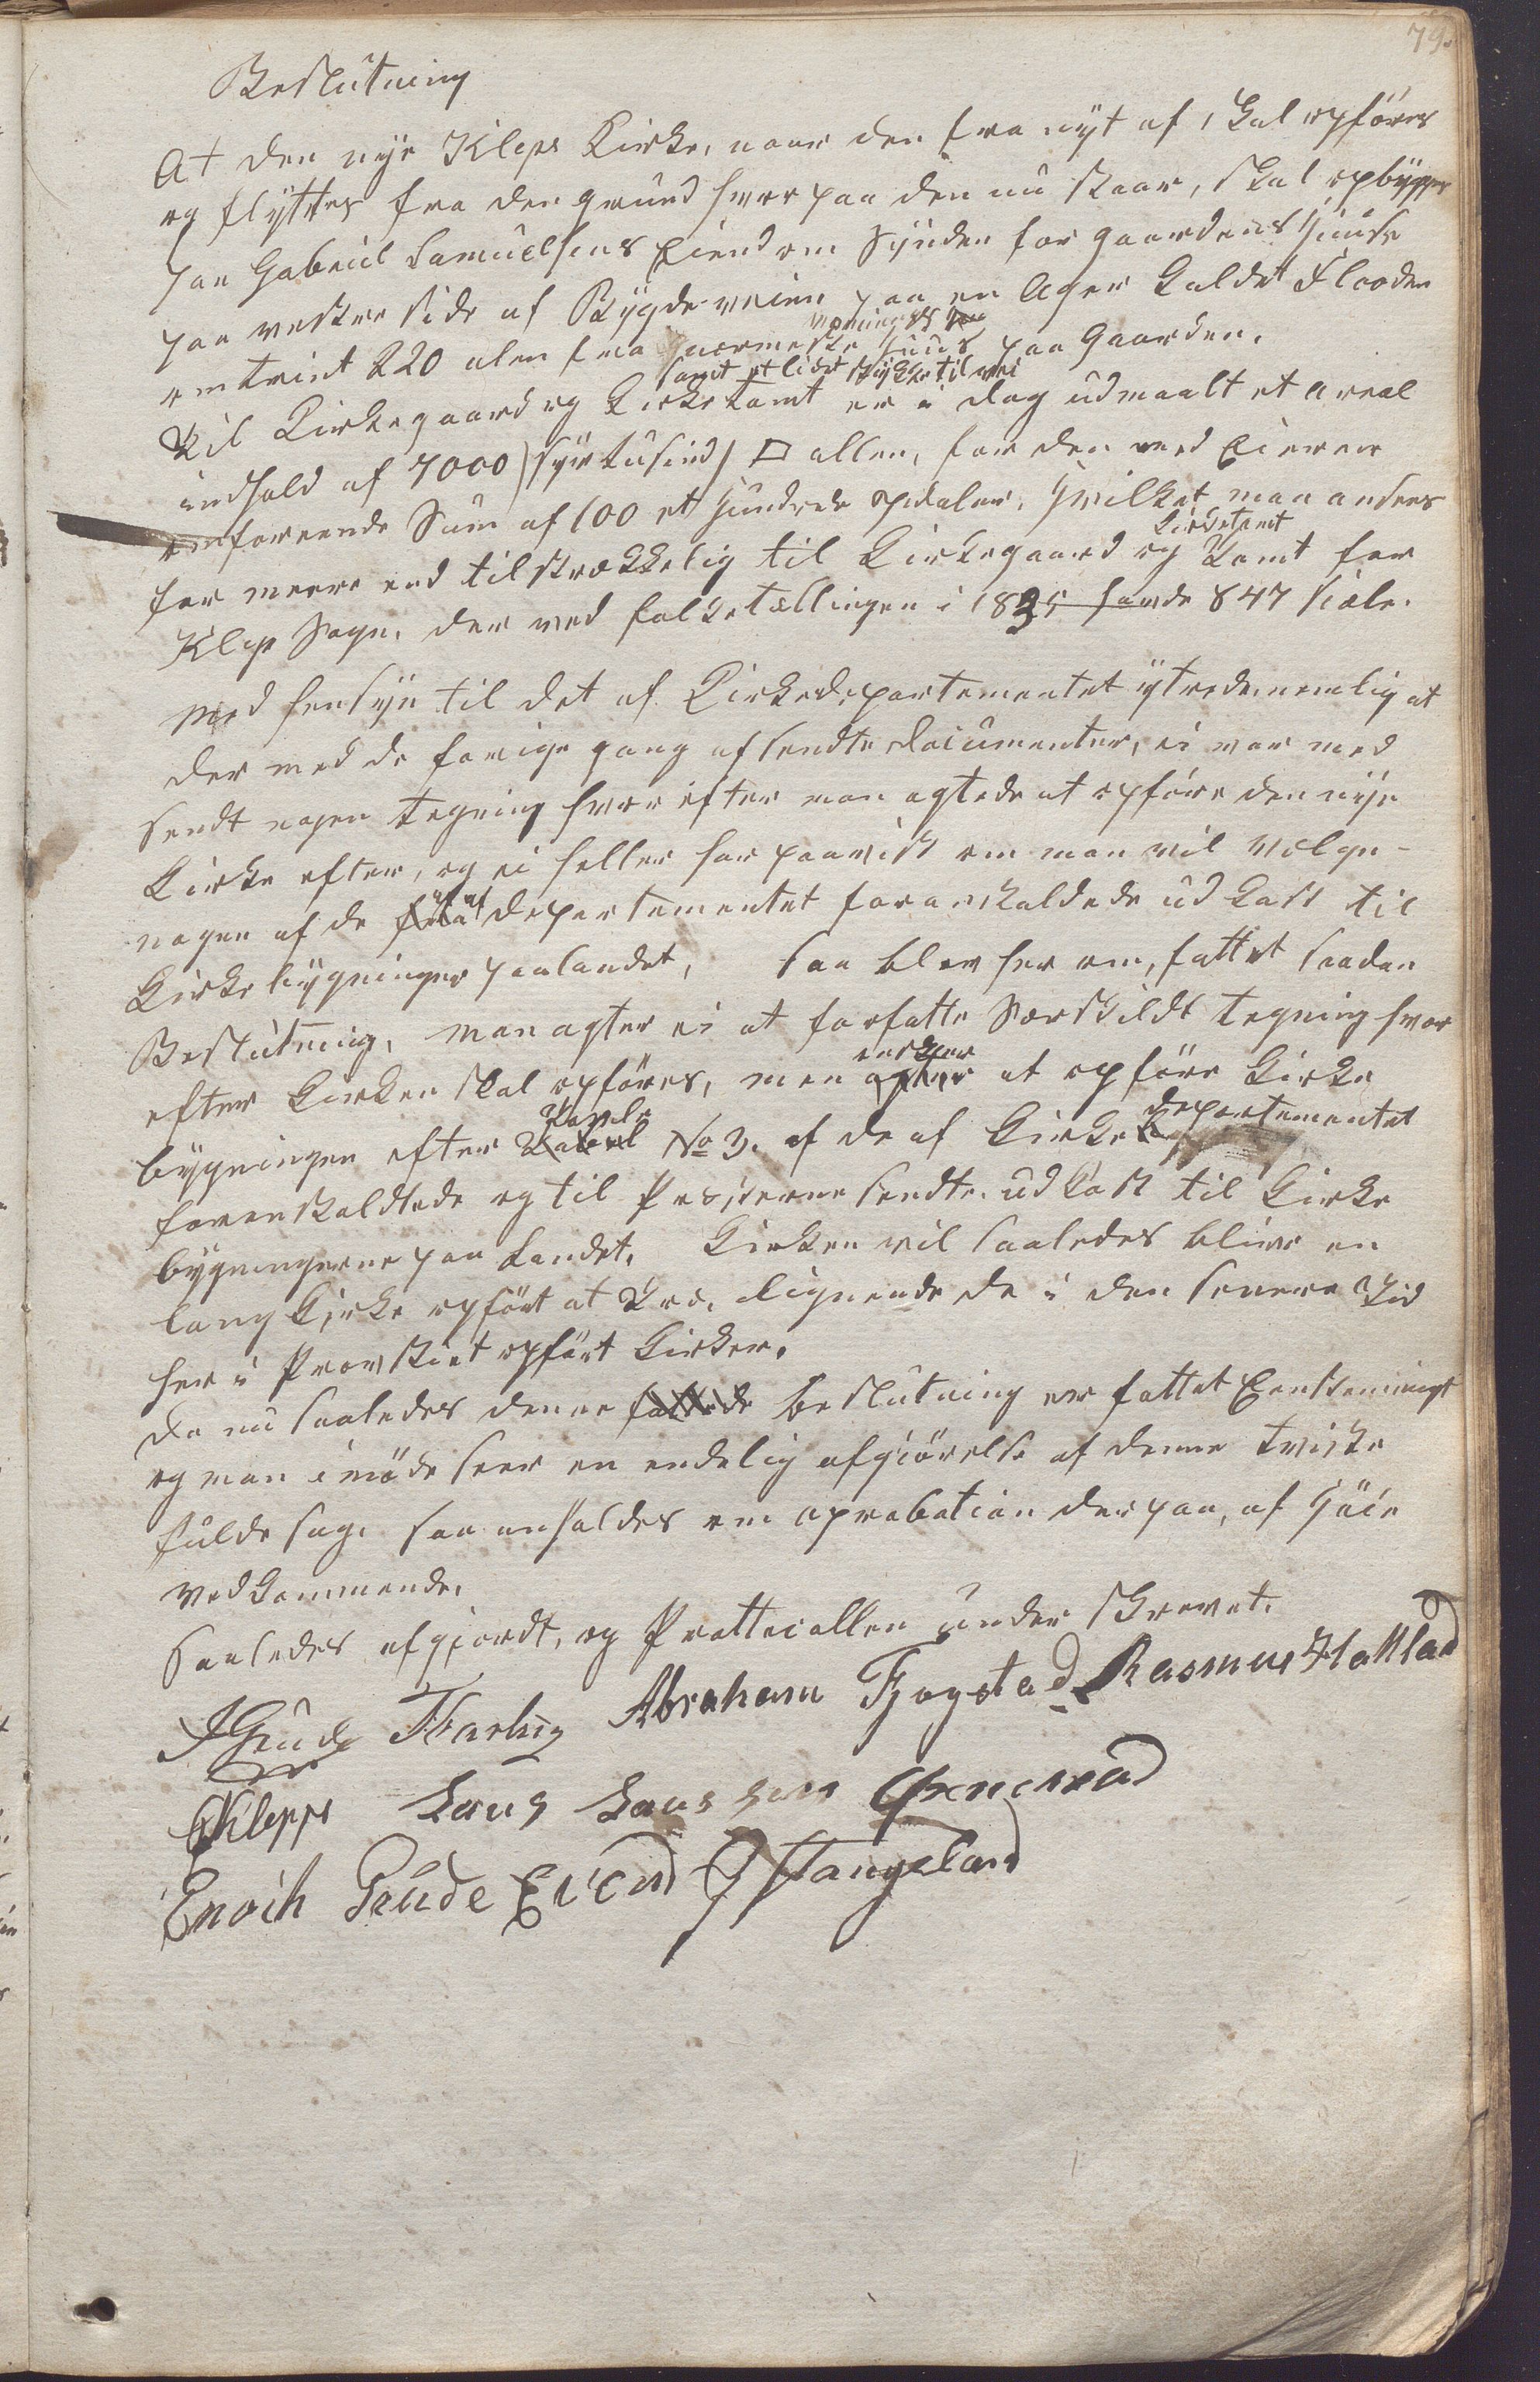 79.
Beslutning
At den nye Kleps Kirke, naar den fra nyt af skal opføres
og flyttes fra den grund hvor paa den nu staar, skal opbygges
paa Gabriel Samuelsens Eiendom Synden for gaardens Huuse
paa vestre side af Bygdeveien paa en Ager kaldet Flooden
vonings
omtrint 220 alen fra nærmeste Huus paa Gaarden.
samt et lidet stykke til vei
Til Kirkegaard og Kirketomt er i dag udmaalt et areal
indhold af 7000 /syvtusind/ □ allen, for den med Eieren
omforenede Sum af 100 et Hundrede Spdaler, Hvilket man ansees
Kirketomt
for meere end tilstrækkelig til Kirkegaard og Tomt for
Klep Sogn, der ved folketællingen i 1835 havde 847 Siæle.
Med hensyn til det af Kirkedepartementet ytrede nemlig at
der med de forige gang afsendte Documenter, ei var med
sendt nogen tegning hvor efter man agtede at opføre den nye
Kirke efter, og ei heller har paavist om man vil vælge
af
nogen af de fra Departementet foranstaldede udkast til
Kirkebygninger paa landet, saa blev her om, fattet saadan
Beslutning, man agter ei at forfatte Særskildt tegning hvor
ønsker
efter Kirken skal opføres, men agter at opføre Kirke
Tavle
bygningen efter Tabel No 3. af de af Kirke Departementet
foranstaldtede og til Præsterne sendte udkast til Kirke
bygningerne paa Landet. Kirken vil saaledes blive en
lang Kirke opført at Træ, lignende de i den senere Tid
her i Provstiet opført Kirker.
Da nu saaledes denne fattede beslutning er fattet Eenstemmigt
og man imøde seer en endelig afgiørelse af denne tviste
fulde sag, saa anholdes om aprobation derpaa, af Høie
vedkommende.
Saaledes afgjordt, og Prottocollen underskrevet.
Abraham Fjogstad Rasmus Hatlad
Klepp Laus Laussen
Enoch Grude Eivend Stangeland